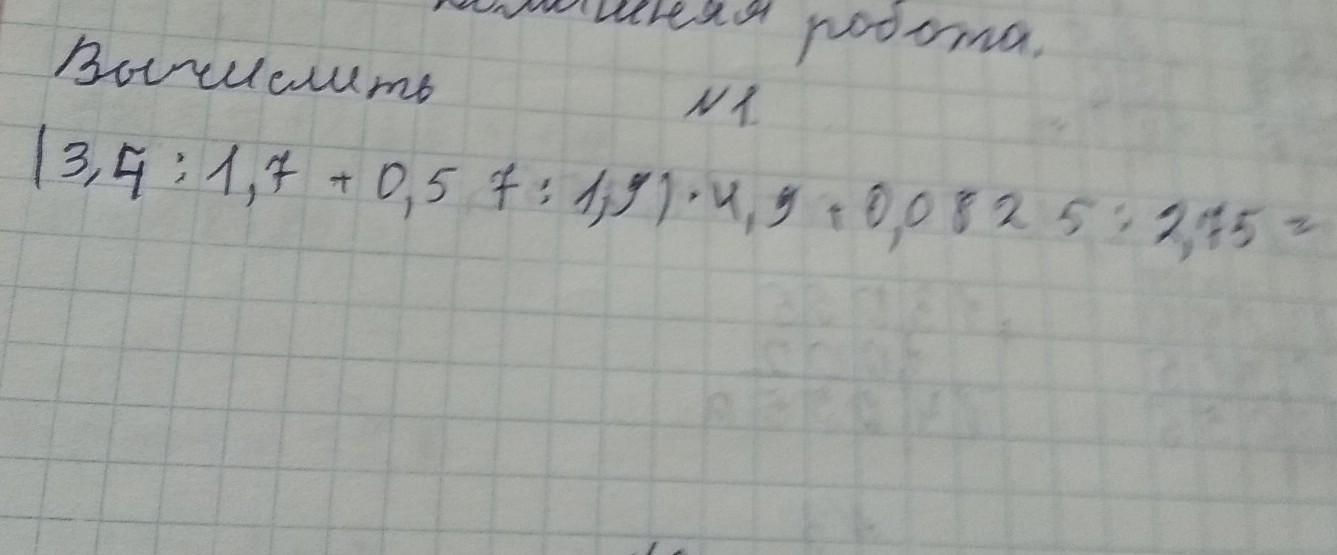 работа.
Вычислить
N 1.
(3,4 : 1,7 + 0,57 : 1,9) · 4,9 + 0,0825 : 2,75 =